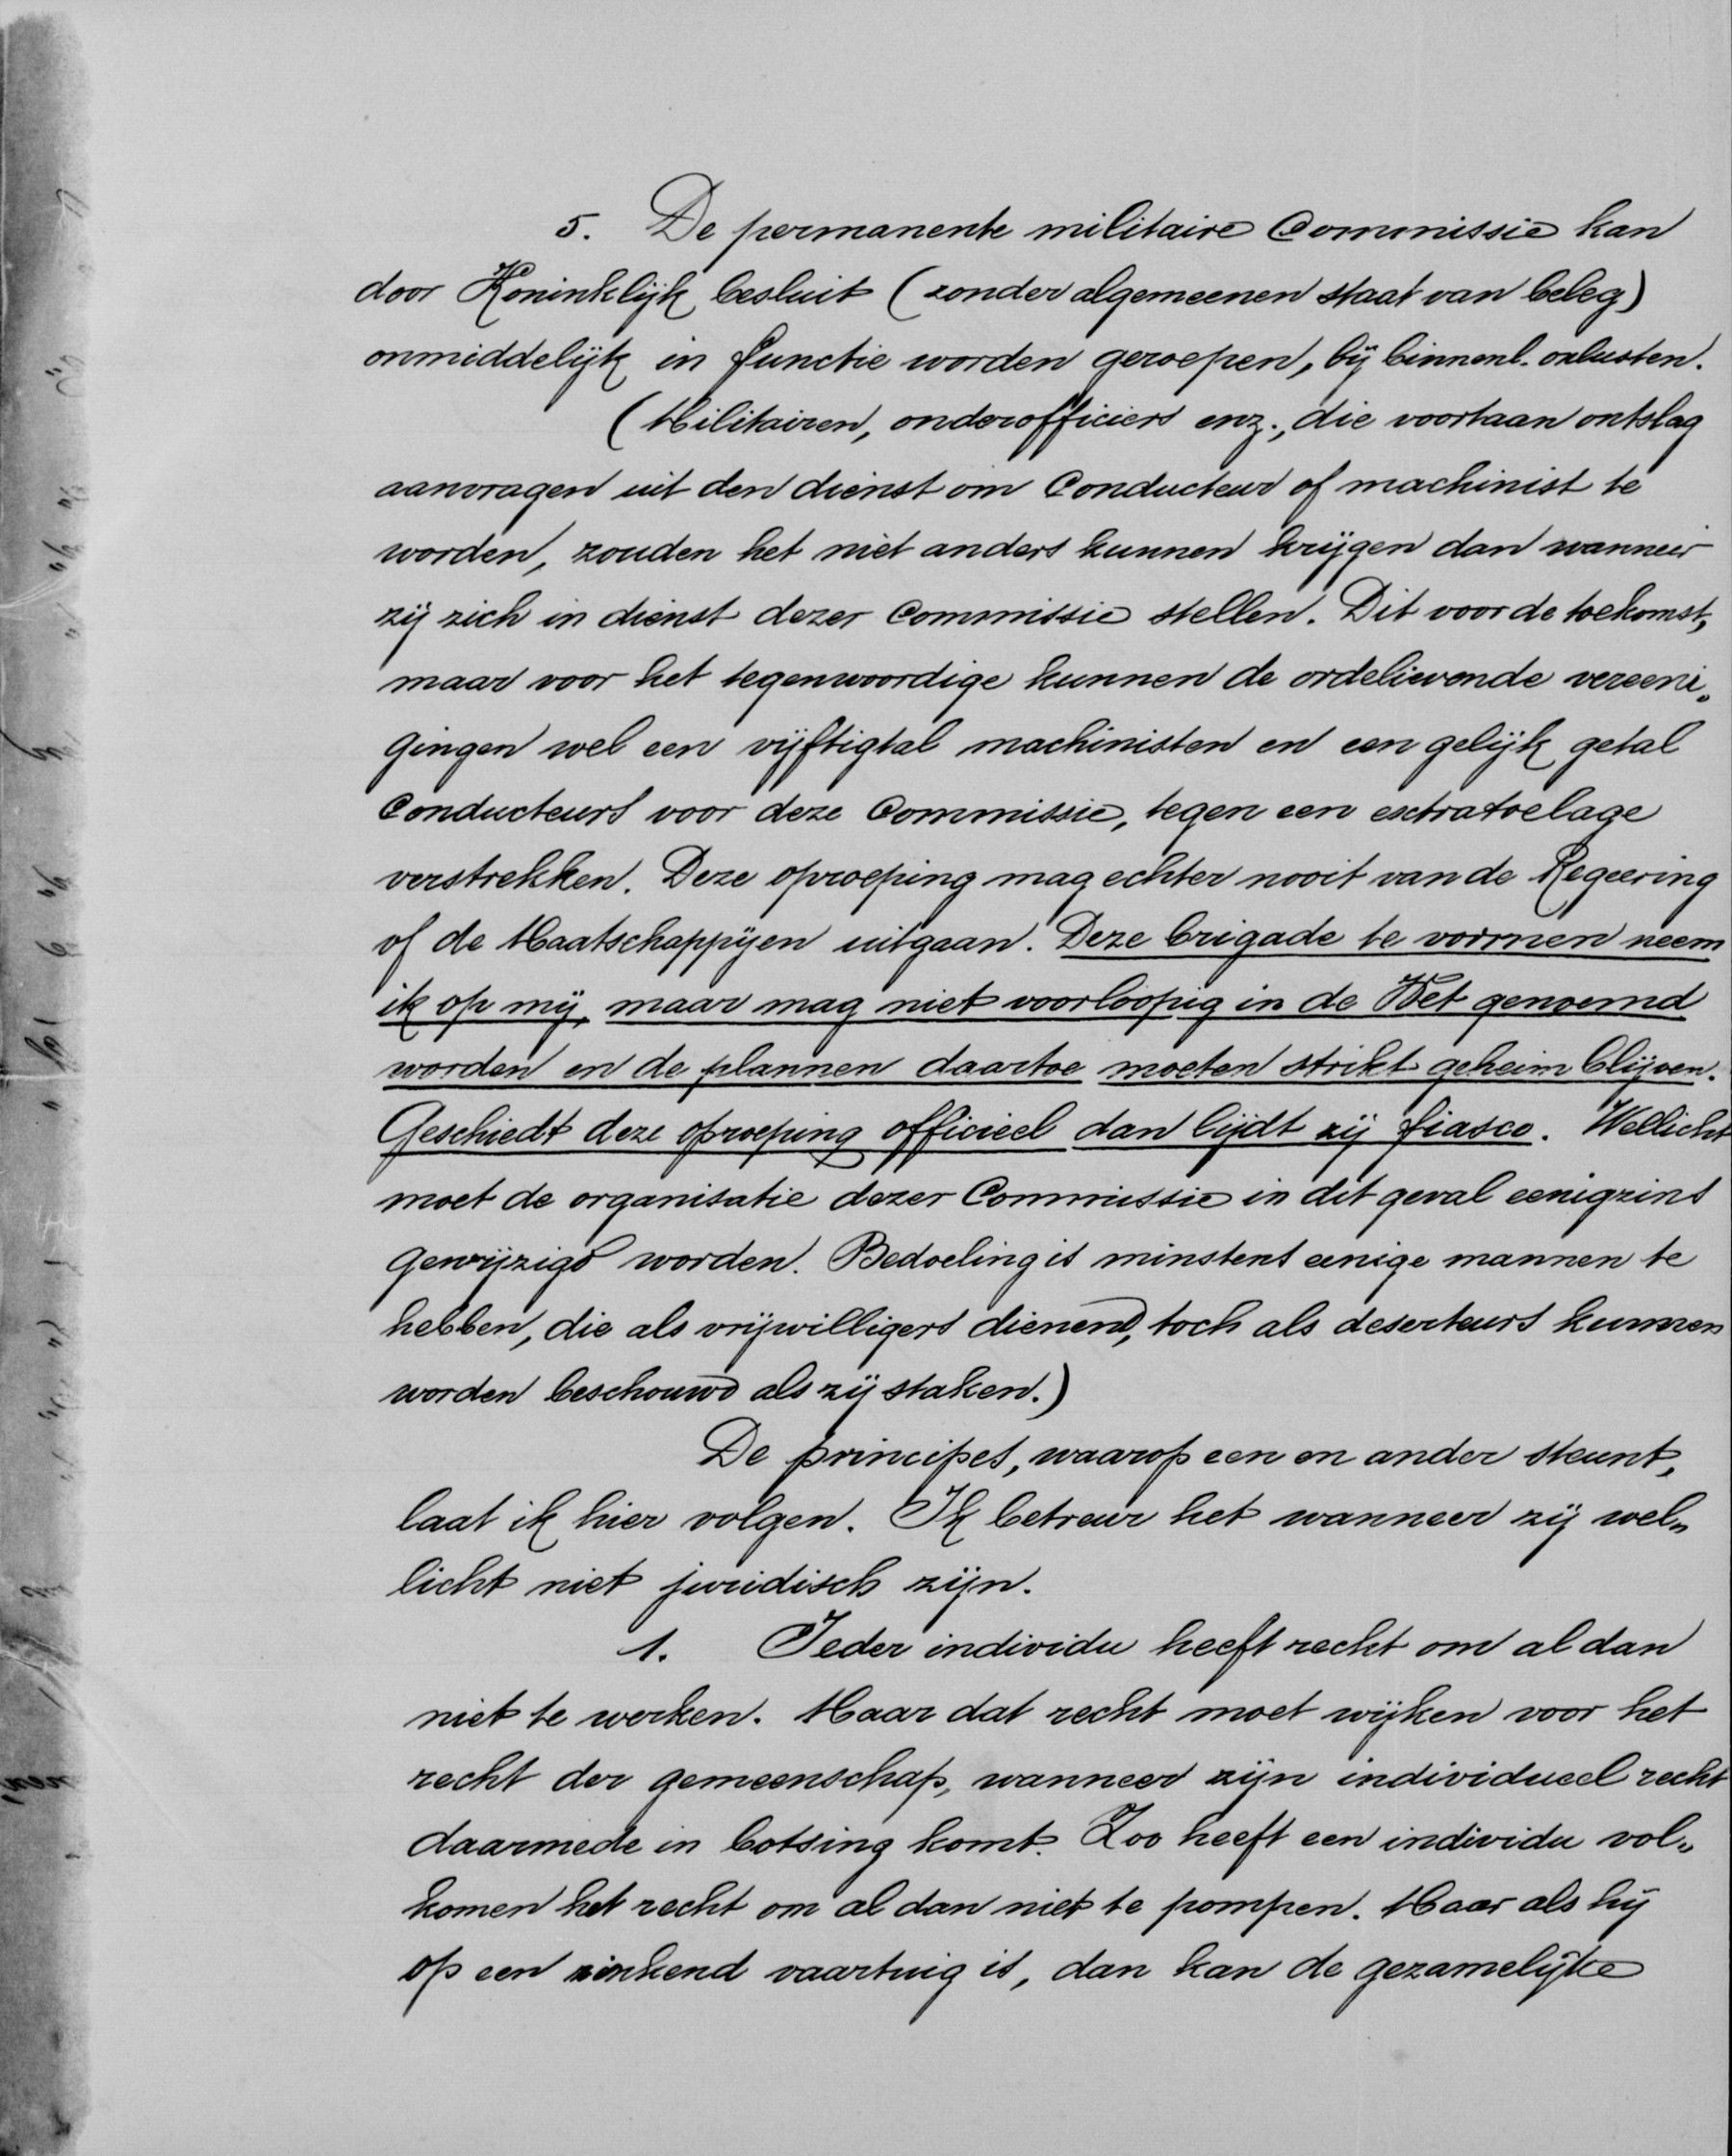 5. De permanente militaire Commissie kan
door Koninklijk besluit (zonder algemeenen staat van beleg)
onmiddelijk in functie worden geroepen, bij binnenl. onlusten.
(Militairen, onderofficiers enz., die voortaan ontslag
aanvragen uit den dienst om Conducteur of machinist te
worden, zouden het niet anders kunnen krijgen dan wanneer
zij zich in dienst dezer Commissie stellen. Dit voor de toekomst,
maar voor het tegenwoordige kunnen de ordelievende vereeni„
gingen wel een vijftigtal machinisten en een gelijk getal
Conducteurs voor deze Commissie, tegen een extratoelage
verstrekken. Deze oproeping mag echter nooit van de Regeering
of de Maatschappijen uitgaan. Deze brigade te vormen neem
ik op mij, maar mag niet voorloopig in de Wet genoemd
worden en de plannen daartoe moeten strikt geheim blijven.
Geschiedt deze oproeping officieel dan lijdt zij fiasco. Wellicht
moet de organisatie dezer Commissie in dit geval eenigzins
gewijzigd worden. Bedoeling is minstens eenige mannen te
hebben, die als vrijwilligers dienend, toch als deserteurs kunnen
worden beschouwd als zij staken.)
De principes, waarop een en ander steunt,
laat ik hier volgen. Ik betreur het wanneer zij wel„
licht niet juridisch zijn.
1. Ieder individu heeft recht om al dan
niet te werken. Maar dat recht moet wijken voor het
recht der gemeenschap, wanneer zijn individueel recht
daarmede in botsing komt. Zoo heeft een individu vol„
komen het recht om al dan niet te pompen. Maar als hij
op een zinkend vaartuig is, dan kan de gezamelijke